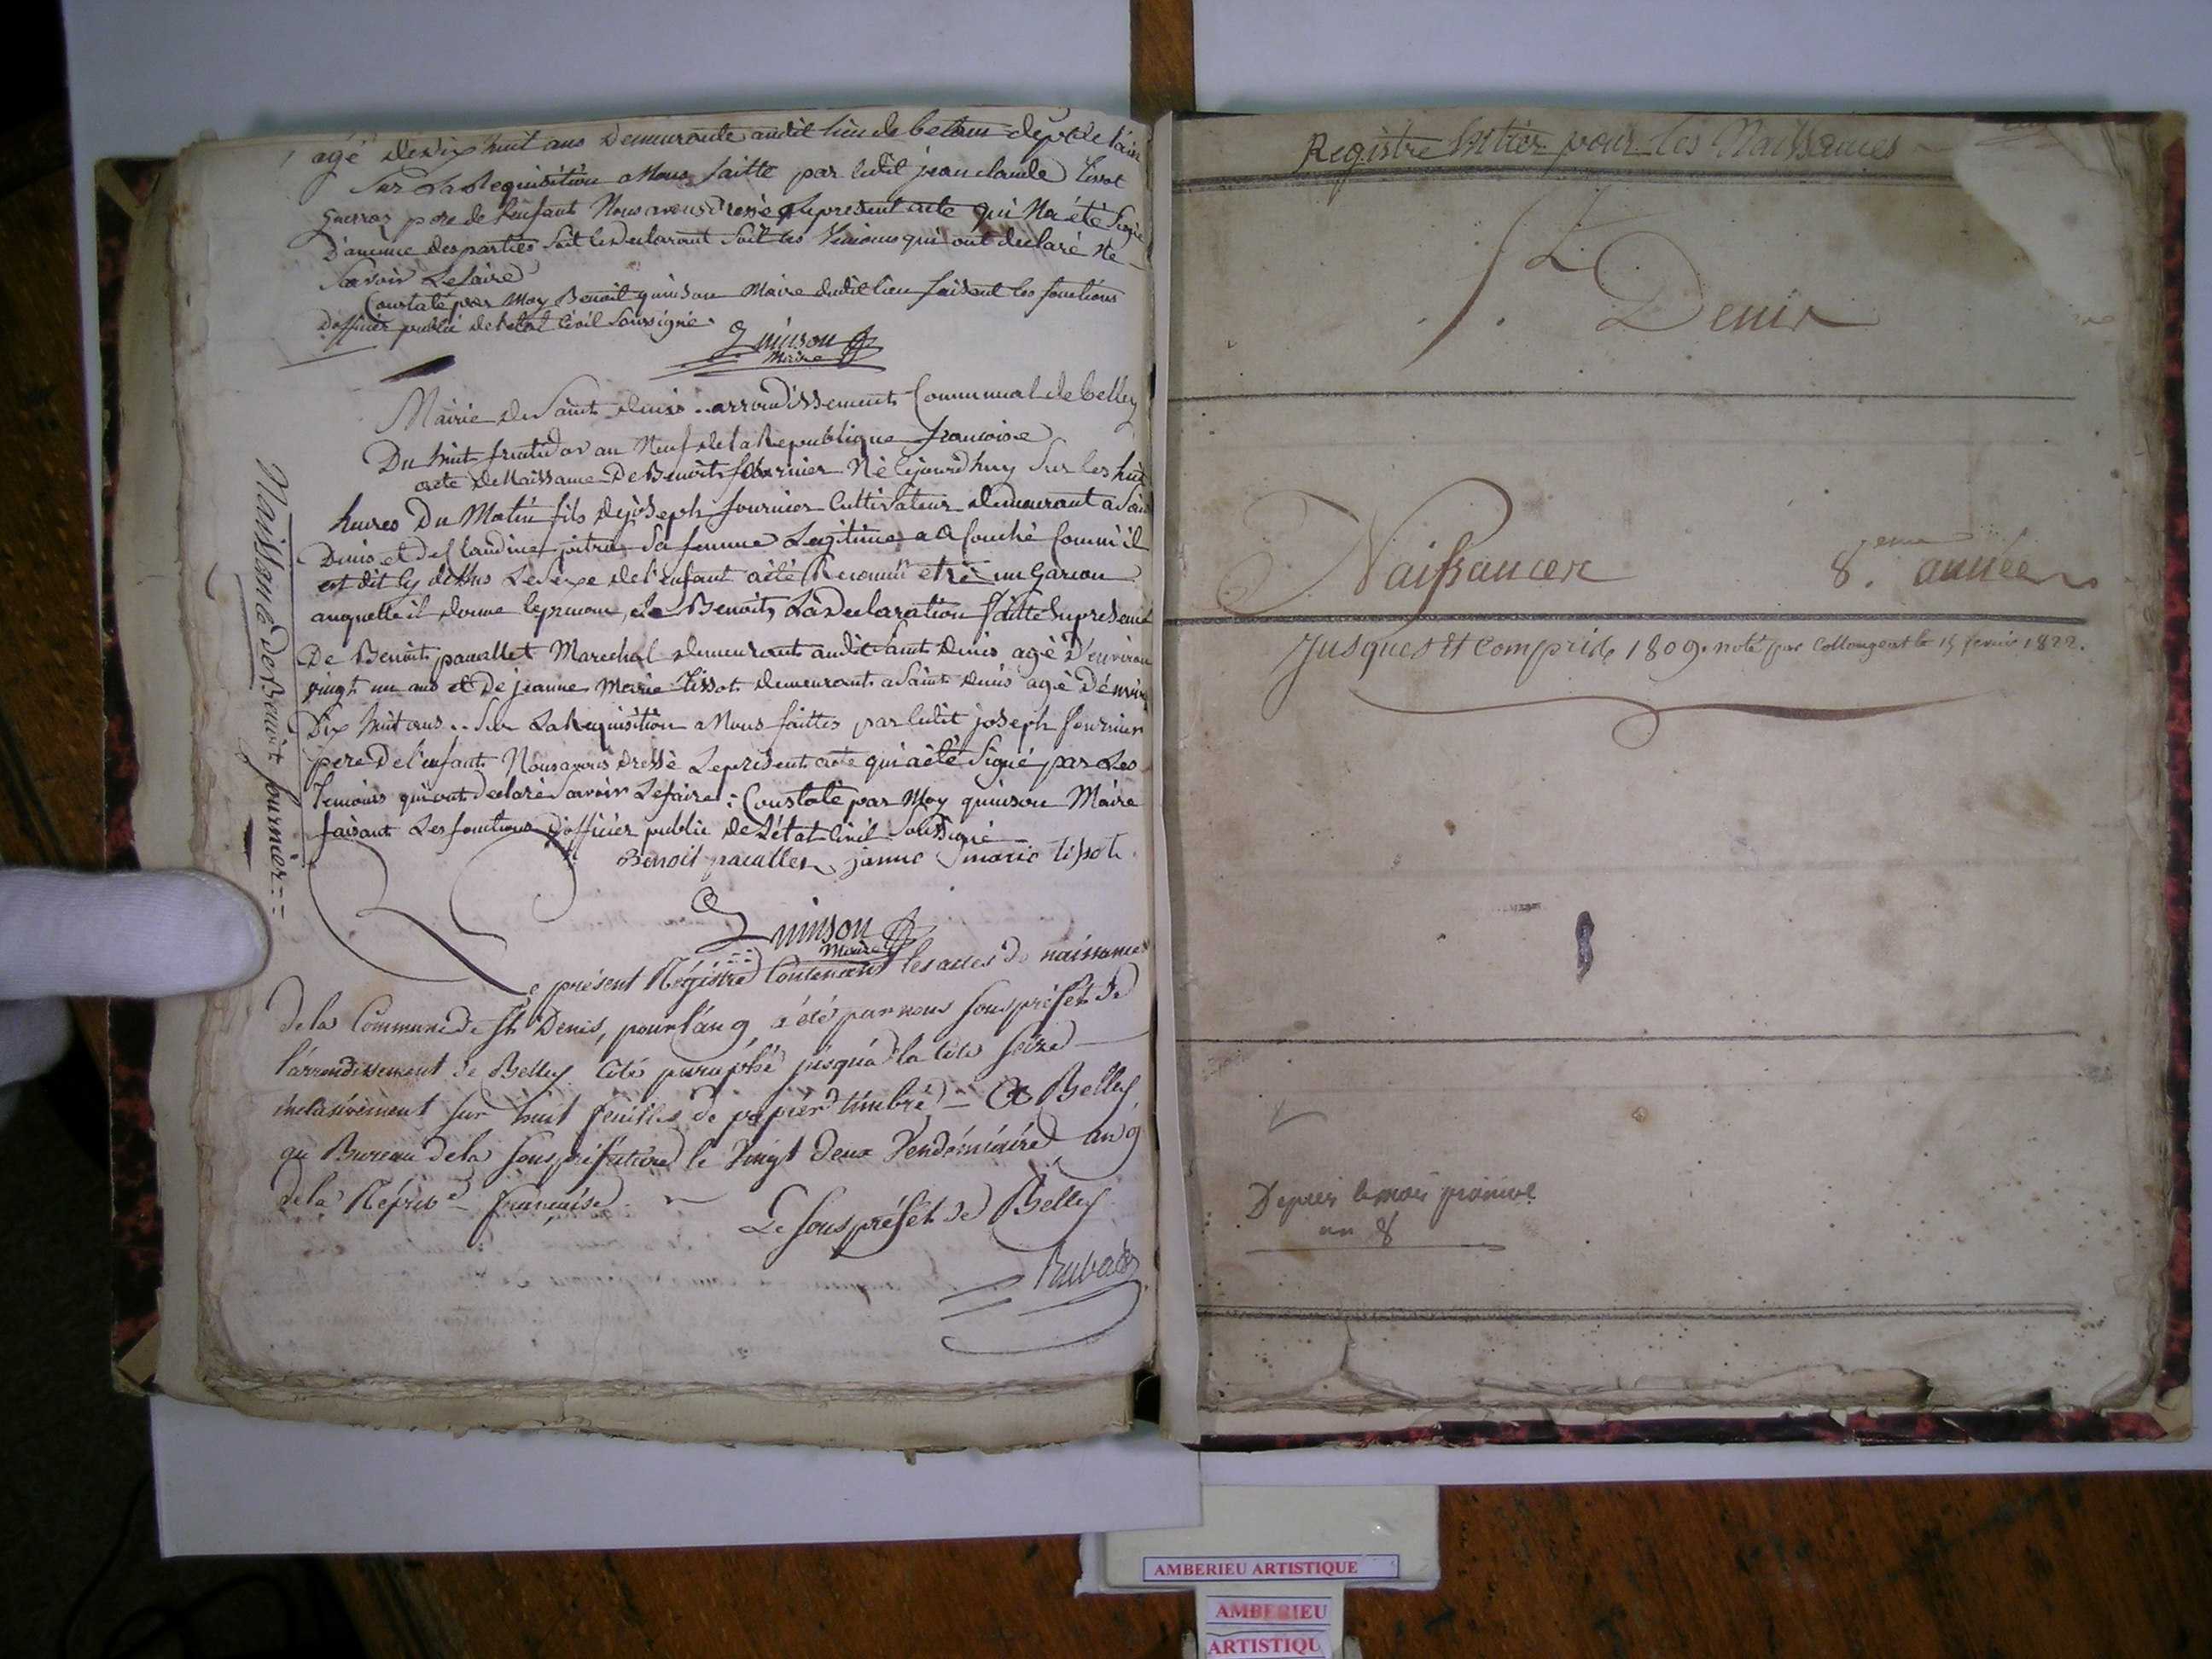 agé de dix huit ans demeurante audit lieu de
Sur la Requisition a Nous faitte par ledit jean claude tissot
pere de l'enfant Nous avons dressé le present acte qui Na été Signé
D'aucune des parties soit le declarant soit les temoins qui ont declaré Ne
Savoir Le faire
Constaté par Moy Benoit quinson Maire dudit lieu faisant les fonctions
D'officier public de l'etat Civil Soussigné.
Quinson
Maire
Mairie de Saint denis .. arrondissement Communal de belley
Du huit fructidor an Neuf de la Republique francoise
acte de Naissance De Benoit fournier Né cejourd'huy Sur les huit
heures Du Matin fils de joseph fournier Cultivateur demeurant a Saint
Denis et de Claudine pitre Sa femme Legitime a Couché Comm'il
est dit cy dessus Le Sexe de l'enfant a été Reconnu etre un Garcon
auquelle il donne le prenom de Benoit, La Declaration faitte En presence
De Benoit pacallet Marechal demeurant audit Saint Denis agé D'environ
vingt un ans et De jeanne Marie tissot demeurant a Saint Denis agé D'environ
Dix huit ans .. Sur La Requisition a Nous faittes par ledit joseph fournier
pere De l'enfant Nous avons dressé Le present acte qui a été Signé par Les
temoins qui ont declaré Savoir Le faire : Constaté par Moy quinson Maire
faisant Les fonctions D'officier public de L'état Civil Soussigné
Benoit pacallet jeanne marie tissot
Quinson
Maire
Naissance de Benoit fournier
Le présent Régistre Contenant les actes de naissances
de la Commune de St Denis, pour l'an 9, a été par nous Sous préfet de
l'arrondissement de Belley Coté paraphé jusqu'à la Cote seize
inclusivement sur huit feuilles de papier timbré - A Belley,
au Bureau de la Sous préfecture le Vingt deux Vendémiaire an 9
de la Répube française
Le Sous préfet de Belley
Registre Entier pour les Naissances
St Denis
Naissances 8.eme année
Jusques et compris 1809. noté par Collongeat le 15 1822.
Depuis le mois
an 8
AMBERIEU ARTISTIQUE
AMBERIEU
ARTISTIQU